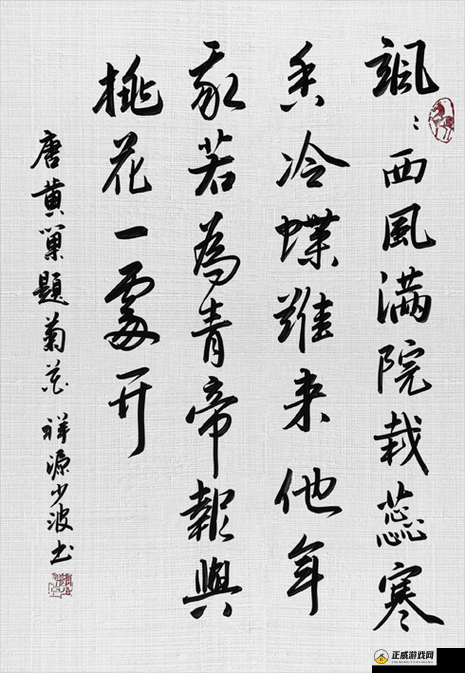 飒:西風满院栽蕊寒
香冷蝶難来他年
我若為青帝報與
桃花一處开
唐黄巢题菊花 祥源少波书
正威游戏网